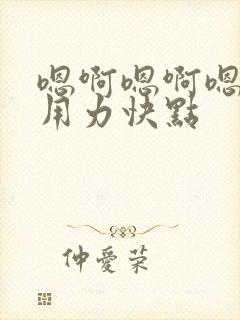 嗯啊嗯啊嗯
用力快點
仲愛荣